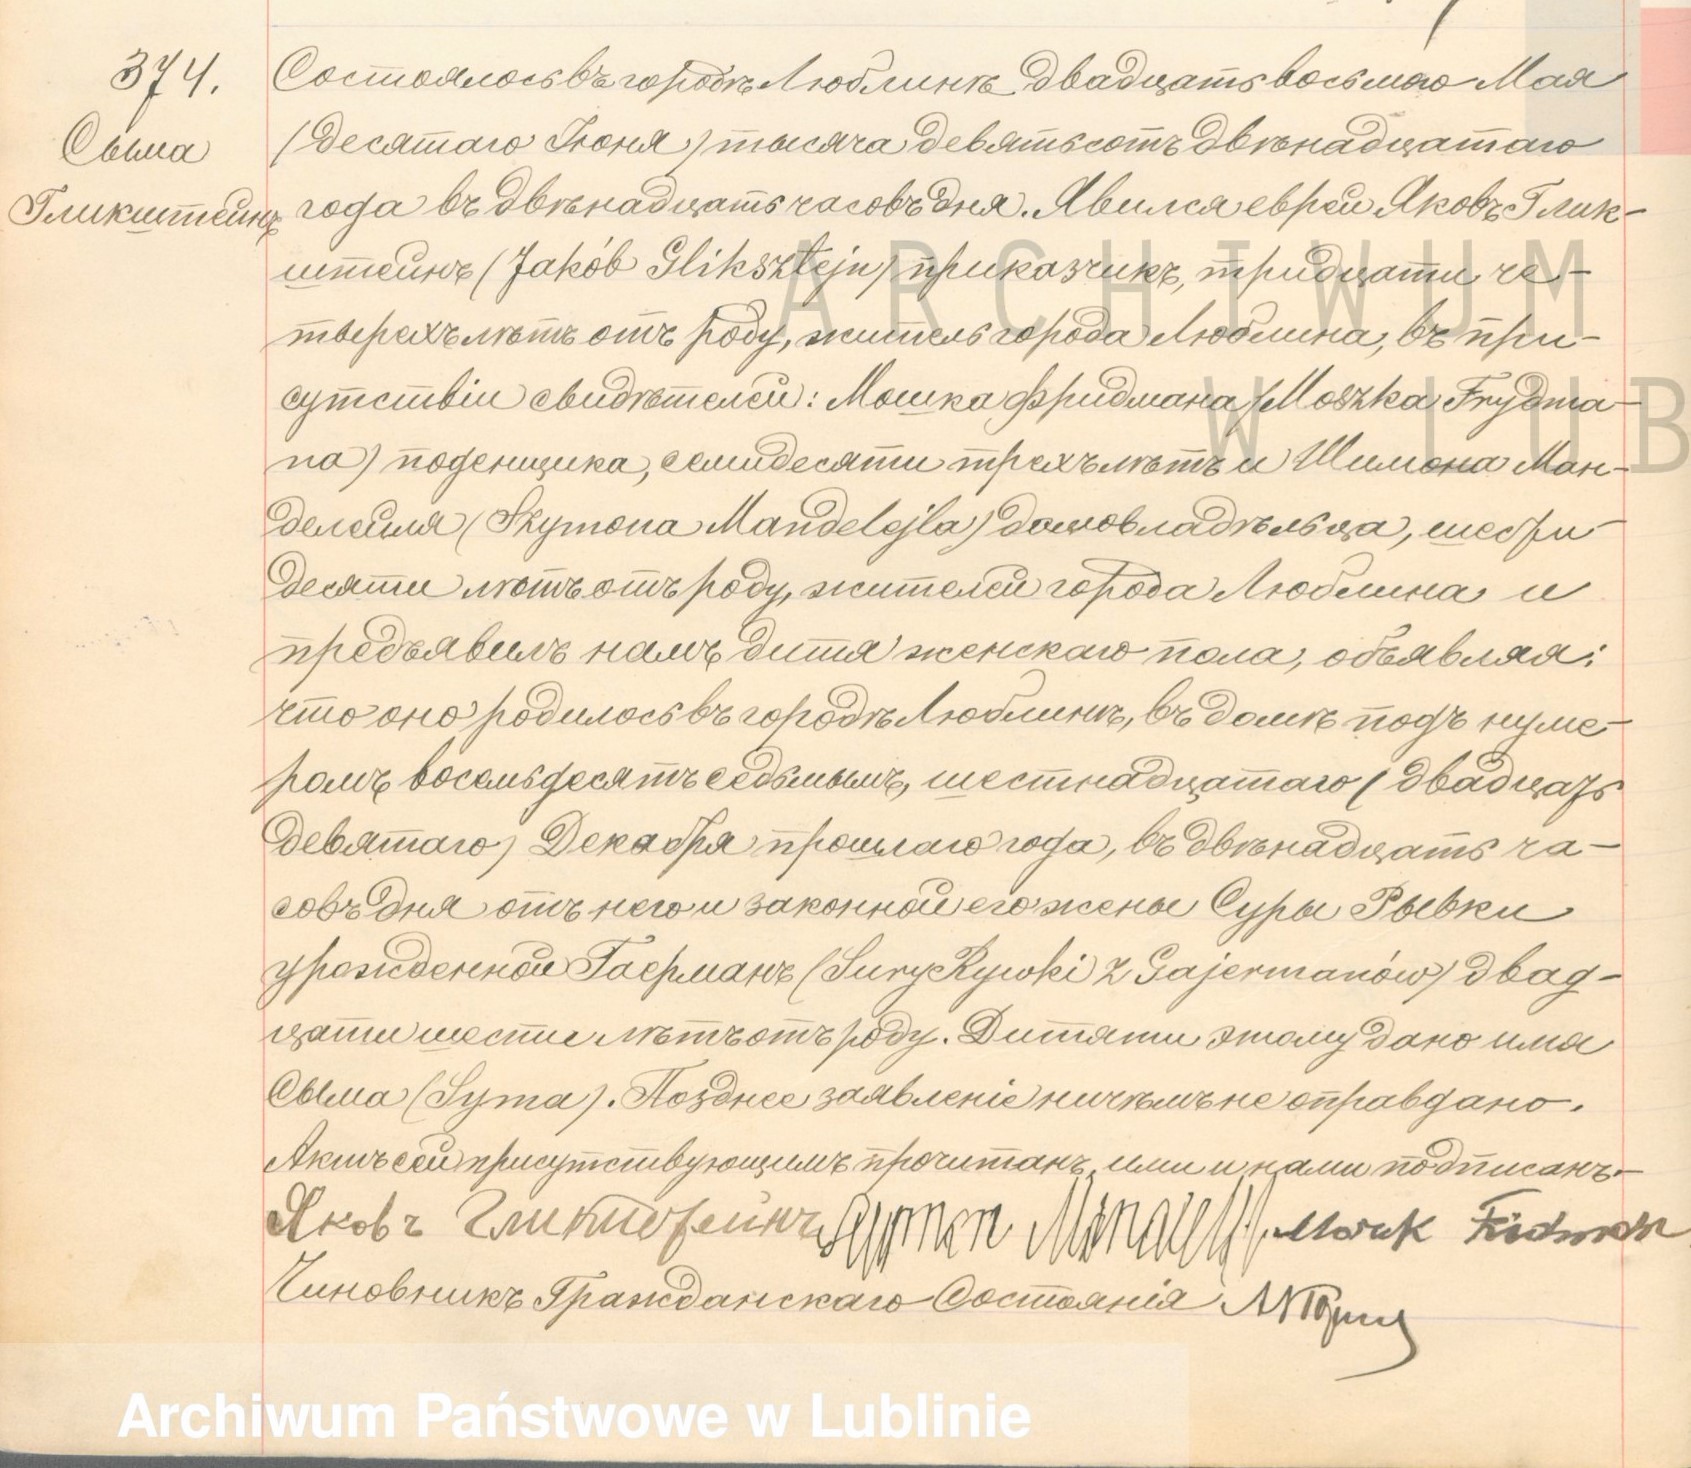 374.
Сыма
Гликштейнъ
Состоялось въ городѣ Люблинѣ двадцать восьмого Мая
(десятаго Іюня) тысяча девятьсотъ двѣнадцатаго
года въ двѣнадцать часовъ дня. Явился еврей Яковъ Глик-
штейнъ (Jakób Gliksztejn) приказчикъ, тридцати че-
тверехъ лѣтъ отъ роду, житель города Люблина, въ при-
сутствіи свидѣтелей: Мошка Фридмана (Moszka Frydma-
na) поденщика, семидесяти трехъ лѣтъ и Шимона Ман-
делейля (Szymona Mandelejla) домовладѣльца, шести
десяти лѣтъ отъ роду, жителей города Люблина и
предъявилъ намъ дитя женскаго пола, объявляя:
что оно родилось въ городѣ Люблинѣ, въ домѣ подъ нуме-
ромъ восемьдесятъ седьмымъ, шестнадцатаго (двадцать
девятаго) Декабря прошлаго года, въ двѣнадцать ча-
совъ дня отъ него и законной его жены Суры Рывки
урожденной Гаерманъ (Sury Rywki z Gajermanów) двад-
цати шести лѣтъ отъ роду. Дитяти этому дано имя
Сыма (Syma). Позднее заявленіе ничѣмъ не оправдано.
Актъ сей присутствующимъ прочитанъ, ими и нами подписанъ.
Яковъ Гликштейнъ
Чиновникъ Гражданскаго Состоянія
ARCHIWUM
W LUB
Archiwum Państwowe w Lublinie